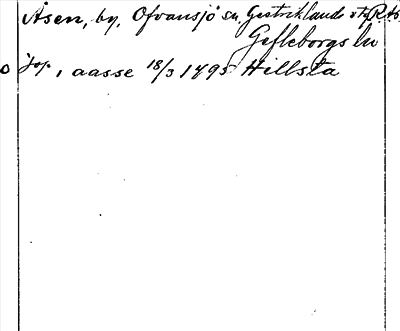 Åsen, by, Ofvansjö sn, Gestriklands
Gefleborgs län
Jop. i aasse 18/3 1895 Hillsta